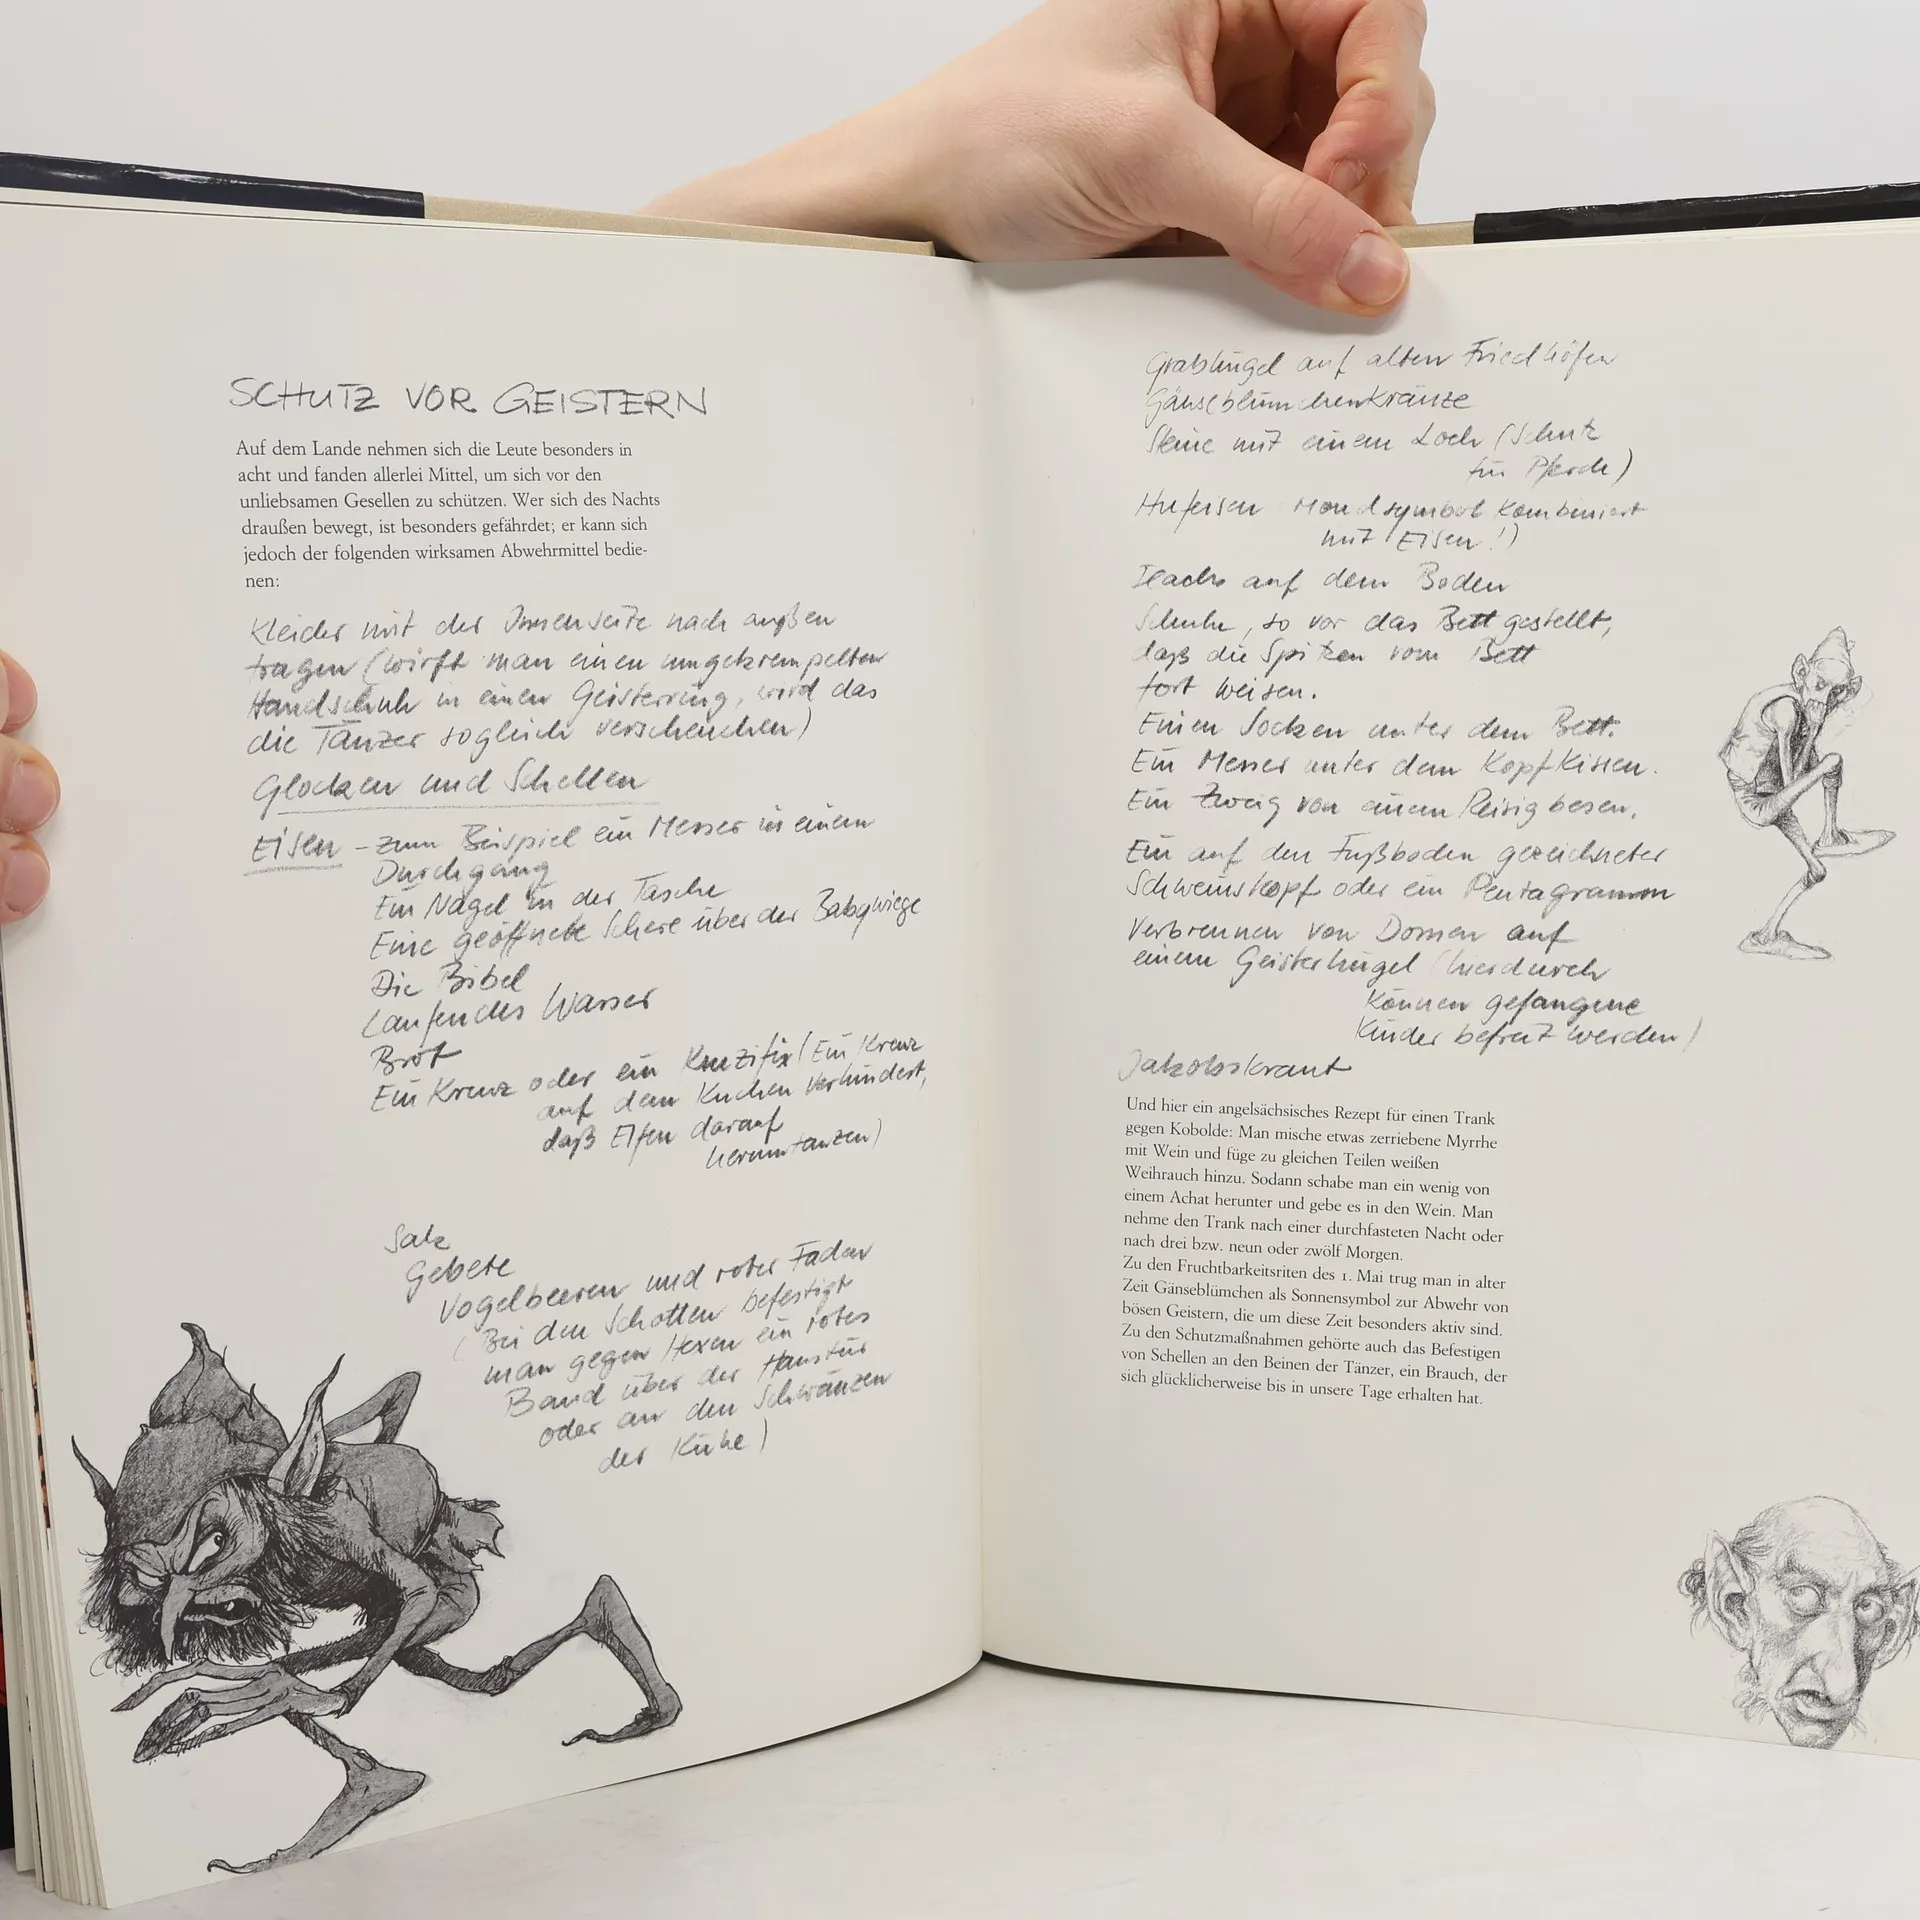 SCHUTZ VOR GEISTERN
Auf dem Lande nehmen sich die Leute besonders in
acht und fanden allerlei Mittel, um sich vor den
unliebsamen Gesellen zu schützen. Wer sich des Nachts
draußen bewegt, ist besonders gefährdet; er kann sich
jedoch der folgenden wirksamen Abwehrmittel bedie-
nen:
Kleider mit der Innenseite nach außen
tragen (wirft man einen umgekrempelten
Handschuh in einen Geisterring, wird das
die Tänzer sogleich verscheuchen)
Glocken und Schellen
Eisen – zum Beispiel ein Messer in einem
Durchgang
Ein Nagel in der Tasche
Eine geöffnete Schere über der Babywiege
Die Bibel
Laufendes Wasser
Brot
Ein Kreuz oder ein Kruzifix (Ein Kreuz
auf dem Kuchen verhindert,
daß Elfen darauf
herumtanzen)
Salz
Gebete
Vogelbeeren und roter Faden
(Bei den Schotten befestigt
man gegen Hexen ein rotes
Band über der Haustür
oder an den Schwänzen
der Kühe)
Grabhügel auf alten Friedhöfen
Gänseblümchenkränze
Steine mit einem Loch (Schutz
für Pferde)
Hufeisen (Mondsymbol kombiniert
mit Eisen!)
Flachs auf dem Boden
Schuhe, so vor das Bett gestellt,
daß die Spitzen vom Bett
fort weisen.
Einen Socken unter dem Bett.
Ein Messer unter dem Kopfkissen.
Ein Zweig von einem Reisigbesen.
Ein auf den Fußboden gezeichneter
Schweinskopf oder ein Pentagramm
Verbrennen von Dornen auf
einem Geisterhügel (hierdurch
können gefangene
Kinder befreit werden)
Jakobskraut
Und hier ein angelsächsisches Rezept für einen Trank
gegen Kobolde: Man mische etwas zerriebene Myrrhe
mit Wein und füge zu gleichen Teilen weißen
Weihrauch hinzu. Sodann schabe man ein wenig von
einem Achat herunter und gebe es in den Wein. Man
nehme den Trank nach einer durchfasteten Nacht oder
nach drei bzw. neun oder zwölf Morgen.
Zu den Fruchtbarkeitsriten des 1. Mai trug man in alter
Zeit Gänseblümchen als Sonnensymbol zur Abwehr von
bösen Geistern, die um diese Zeit besonders aktiv sind.
Zu den Schutzmaßnahmen gehörte auch das Befestigen
von Schellen an den Beinen der Tänzer, ein Brauch, der
sich glücklicherweise bis in unsere Tage erhalten hat.